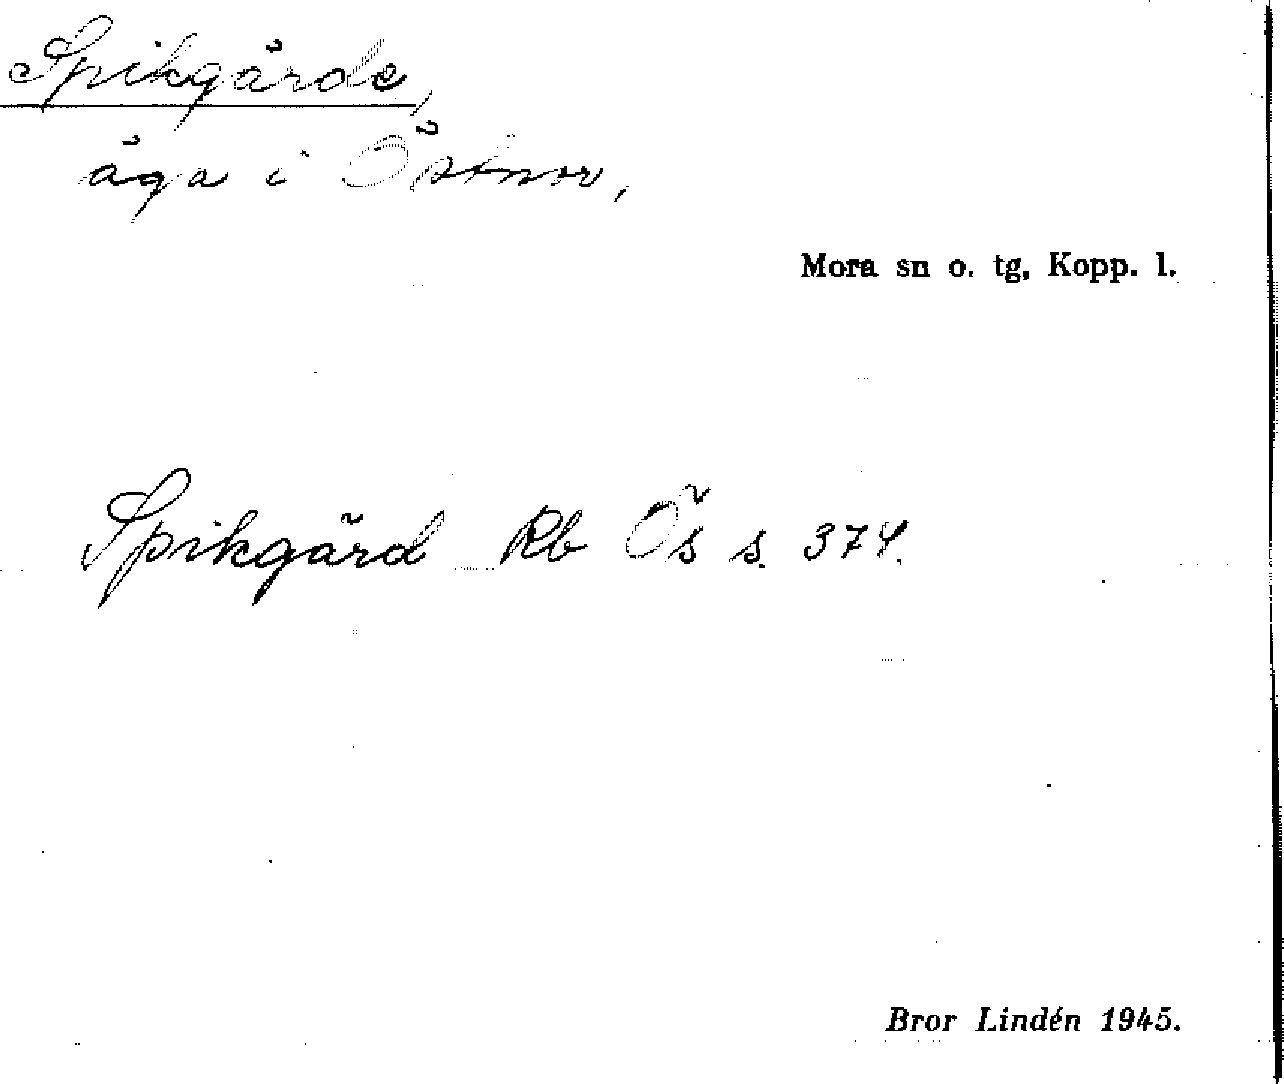 Spikgärde,
äga i Östnor,
Mora sn o. tg, Kopp. l.
Spikgärd Rb Ös s. 374.
Bror Lindén 1945.